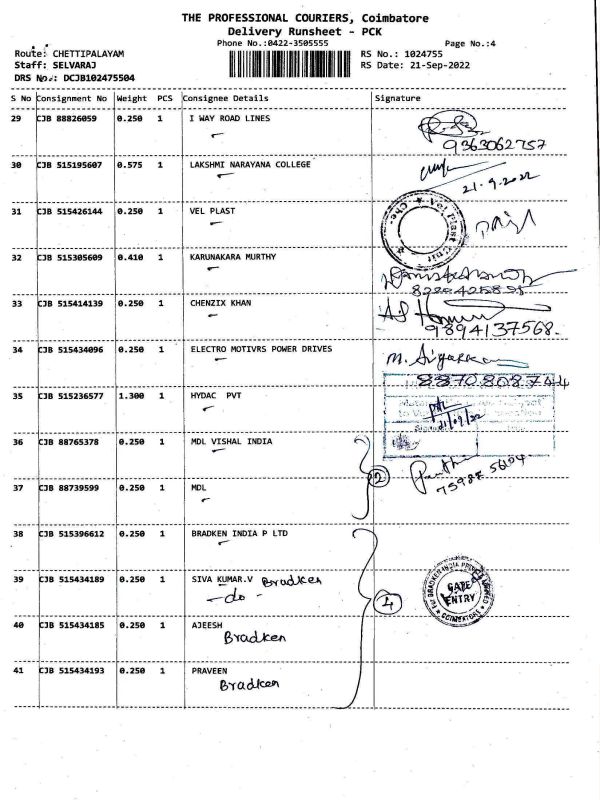 THE PROFESSIONAL COURIERS, Coimbatore
Delivery Runsheet - PCK
Phone No.:0422-3505555 Page No.:4
Route: CHETTIPALAYAM RS No.: 1024755
Staff: SELVARAJ RS Date: 21-Sep-2022
DRS No.: DCJB102475504
S No Consignment No Weight PCS Consignee Details Signature
29 CJB 88826059 0.250 1 I WAY ROAD LINES
9363062757
30 CJB 515195607 0.575 1 LAKSHMI NARAYANA COLLEGE
21-9-2022
31 CJB 515426144 0.250 1 VEL PLAST
Vel Plast Unit
32 CJB 515305609 0.410 1 KARUNAKARA MURTHY
33 CJB 515414139 0.250 1 CHENZIX KHAN
9894137568.
34 CJB 515434096 0.250 1 ELECTRO MOTIVRS POWER DRIVES
8870808744
35 CJB 515236577 1.300 1 HYDAC PVT
21/9/22
36 CJB 88765378 0.250 1 MDL VISHAL INDIA
2
75988 56104
37 CJB 88739599 0.250 1 MDL
38 CJB 515396612 0.250 1 BRADKEN INDIA P LTD
39 CJB 515434189 0.250 1 SIVA KUMAR.V Bradken
-do-
4
For BRADKEN INDIA PRIVATE LIMITED
GATE
ENTRY
COIMBATORE
40 CJB 515434185 0.250 1 AJEESH
Bradken
41 CJB 515434193 0.250 1 PRAVEEN
Bradken